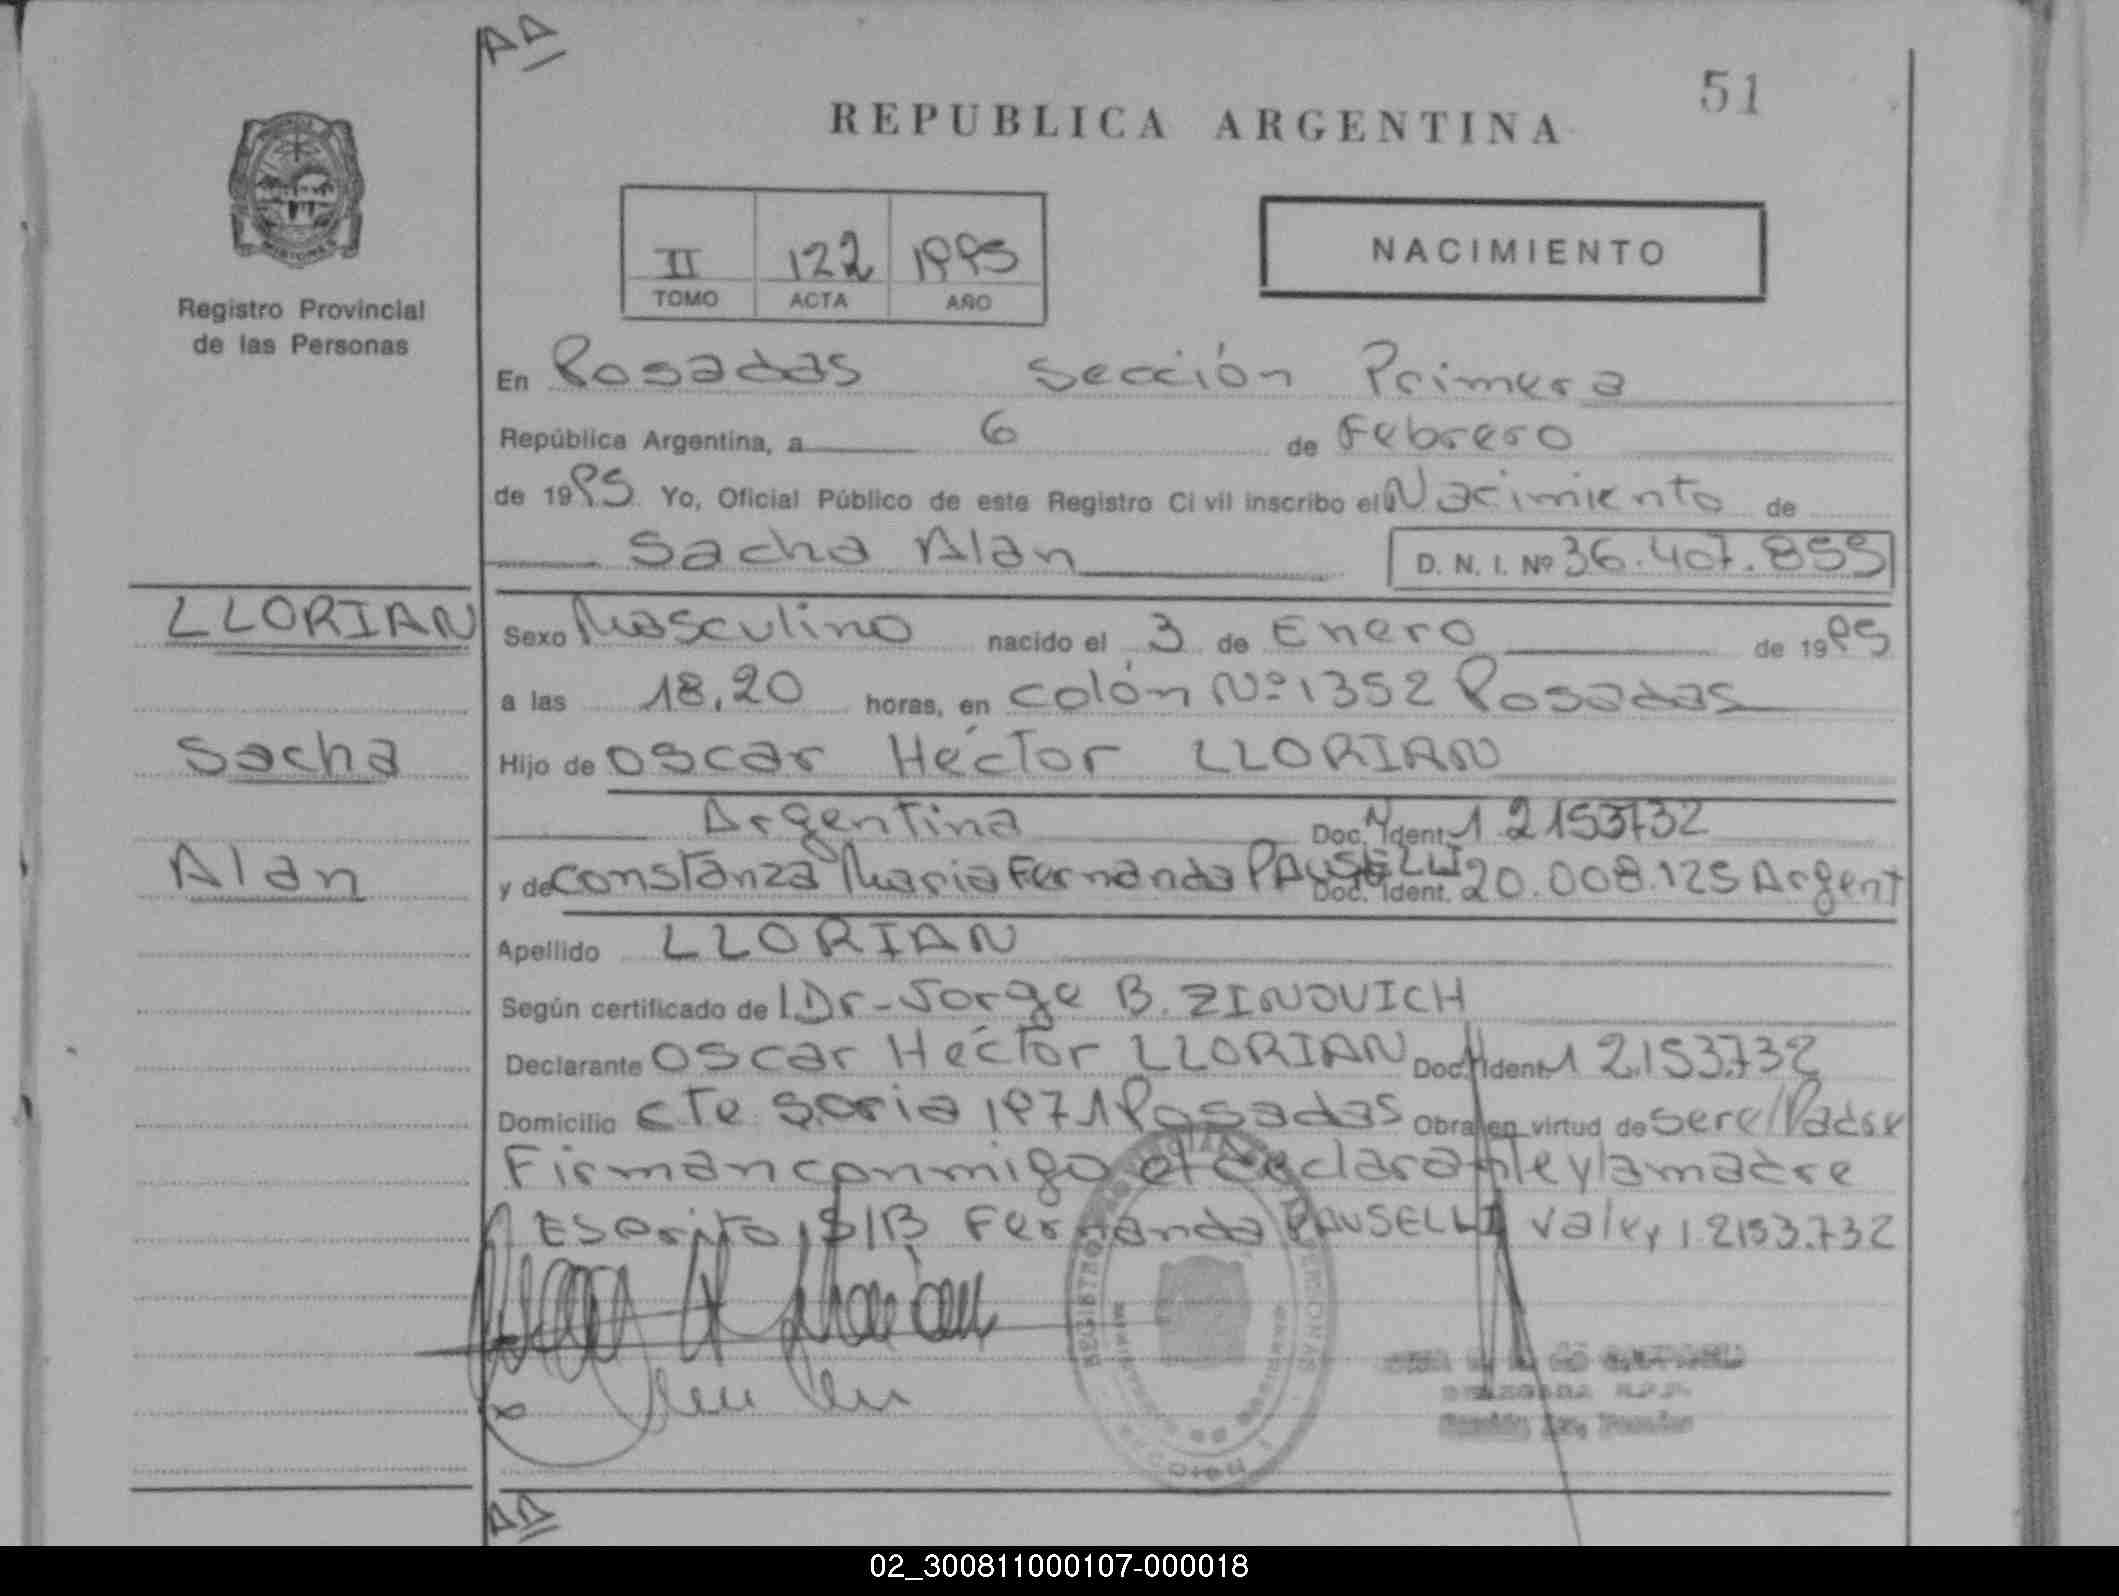 AA
51
REPUBLICA ARGENTINA
II 122 1995
TOMO ACTA AÑO
NACIMIENTO
Registro Provincial
de las Personas
En Posadas Sección Primera
República Argentina, a 6 de Febrero
de 1995 Yo, Oficial Público de este Registro Civil inscribo el Nacimiento de
Sacha Alan D. N. I. Nº 36.407.855
LLORIAN
Sacha
Alan
Sexo Masculino nacido el 3 de Enero de 1995
a las 18,20 horas, en Colón Nº 1352 Posadas
Hijo de Oscar Héctor LLORIAN
Argentina Doc. Ident. M 12153732
y de Constanza Maria Fernanda PAUSELLI Doc. Ident. 20.008.125 Argent
Apellido LLORIAN
Según certificado de l Dr. Jorge B. ZINOVICH
Declarante Oscar Héctor LLORIAN Doc. Ident. 12.153.732
Domicilio Cte Soria 1971 Posadas Obra en virtud de ser el Padre
Firman conmigo el declarante y la madre
Escrito S/B Fernanda PAUSELLI Vale y 12153.732
AA
02_300811000107-000018